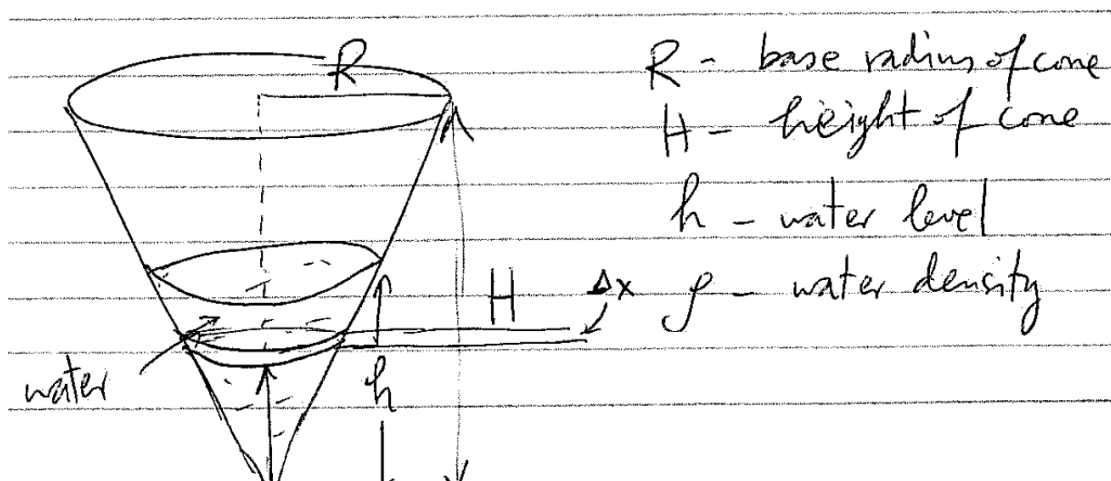 R
R - base radius of cone
H - height of cone
h - water level
H
Δx
ρ - water density
water
h